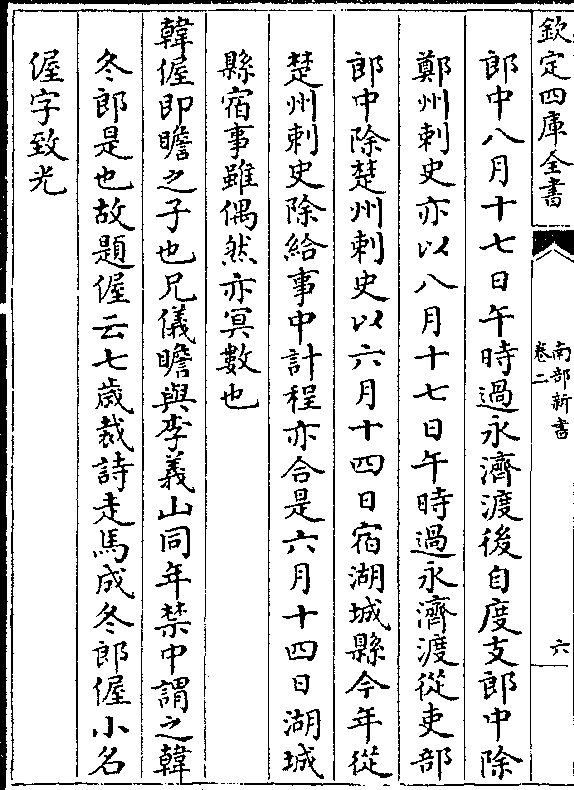 欽定四庫全書
南部新書
卷二
六
郎中八月十七日午時過永濟渡後自度支郎中除
鄭州刺史亦以八月十七日午時過永濟渡從吏部
郎中除楚州刺史以六月十四日宿湖城縣今年從
楚州刺史除給事中計程亦合是六月十四日湖城
縣宿事雖偶然亦冥數也
韓偓即瞻之子也兄儀瞻與李義山同年禁中謂之韓
冬郎是也故題偓云七歲裁詩走馬成冬郎偓小名
偓字致光